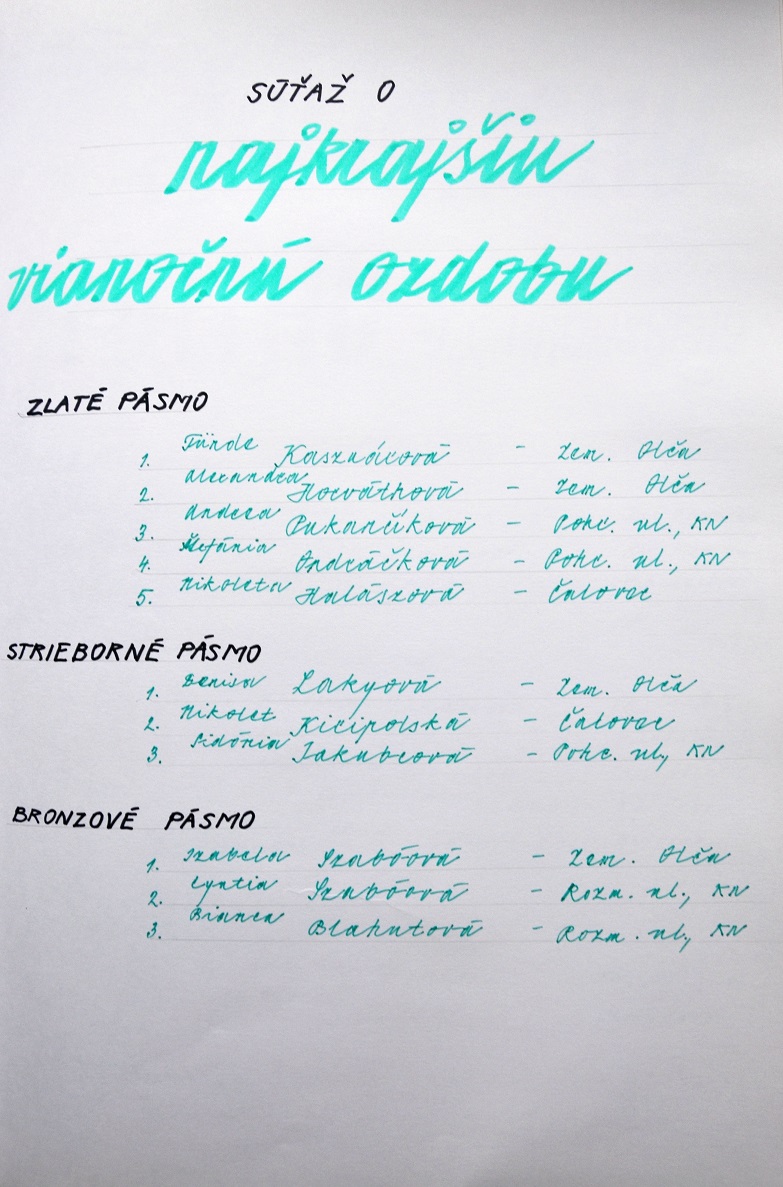 SÚŤAŽ O
najkrajšiu
vianočnú ozdobu
ZLATÉ PÁSMO
1. Tünde Kasznárová - Zem. Olča
2. Alexandra Horváthová - Zem. Olča
3. Andrea Pukančíková - Pohr. ul., KN
4. Štefánia Ondráčková - Pohr. ul., KN
5. Nikoleta Halászová - Čalovec
STRIEBORNÉ PÁSMO
1. Denisa Lakyová - Zem. Olča
2. Nikolet Kicipolská - Čalovec
3. Sidónia Jakubcová - Pohr. ul, KN
BRONZOVÉ PÁSMO
1. Izabela Szabóová - Zem. Olča
2. Cyntia Szabóová - Rozm. ul., KN
3. Bianca Blahutová - Rozm. ul., KN